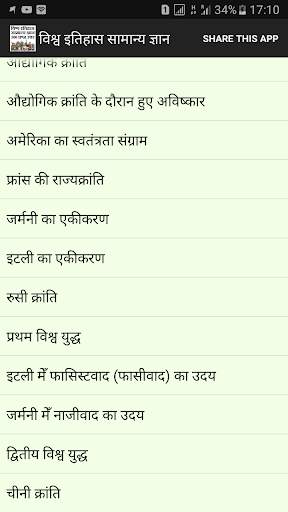 34% 17:10
विश्व इतिहास सामान्य ज्ञान SHARE THIS APP
औद्योगिक क्रांति
औद्योगिक क्रांति के दौरान हुए अविष्कार
अमेरिका का स्वतंत्रता संग्राम
फ्रांस की राज्यक्रांति
जर्मनी का एकीकरण
इटली का एकीकरण
रुसी क्रांति
प्रथम विश्व युद्ध
इटली मेँ फासिस्टवाद (फासीवाद) का उदय
जर्मनी मेँ नाजीवाद का उदय
द्वितीय विश्व युद्ध
चीनी क्रांति